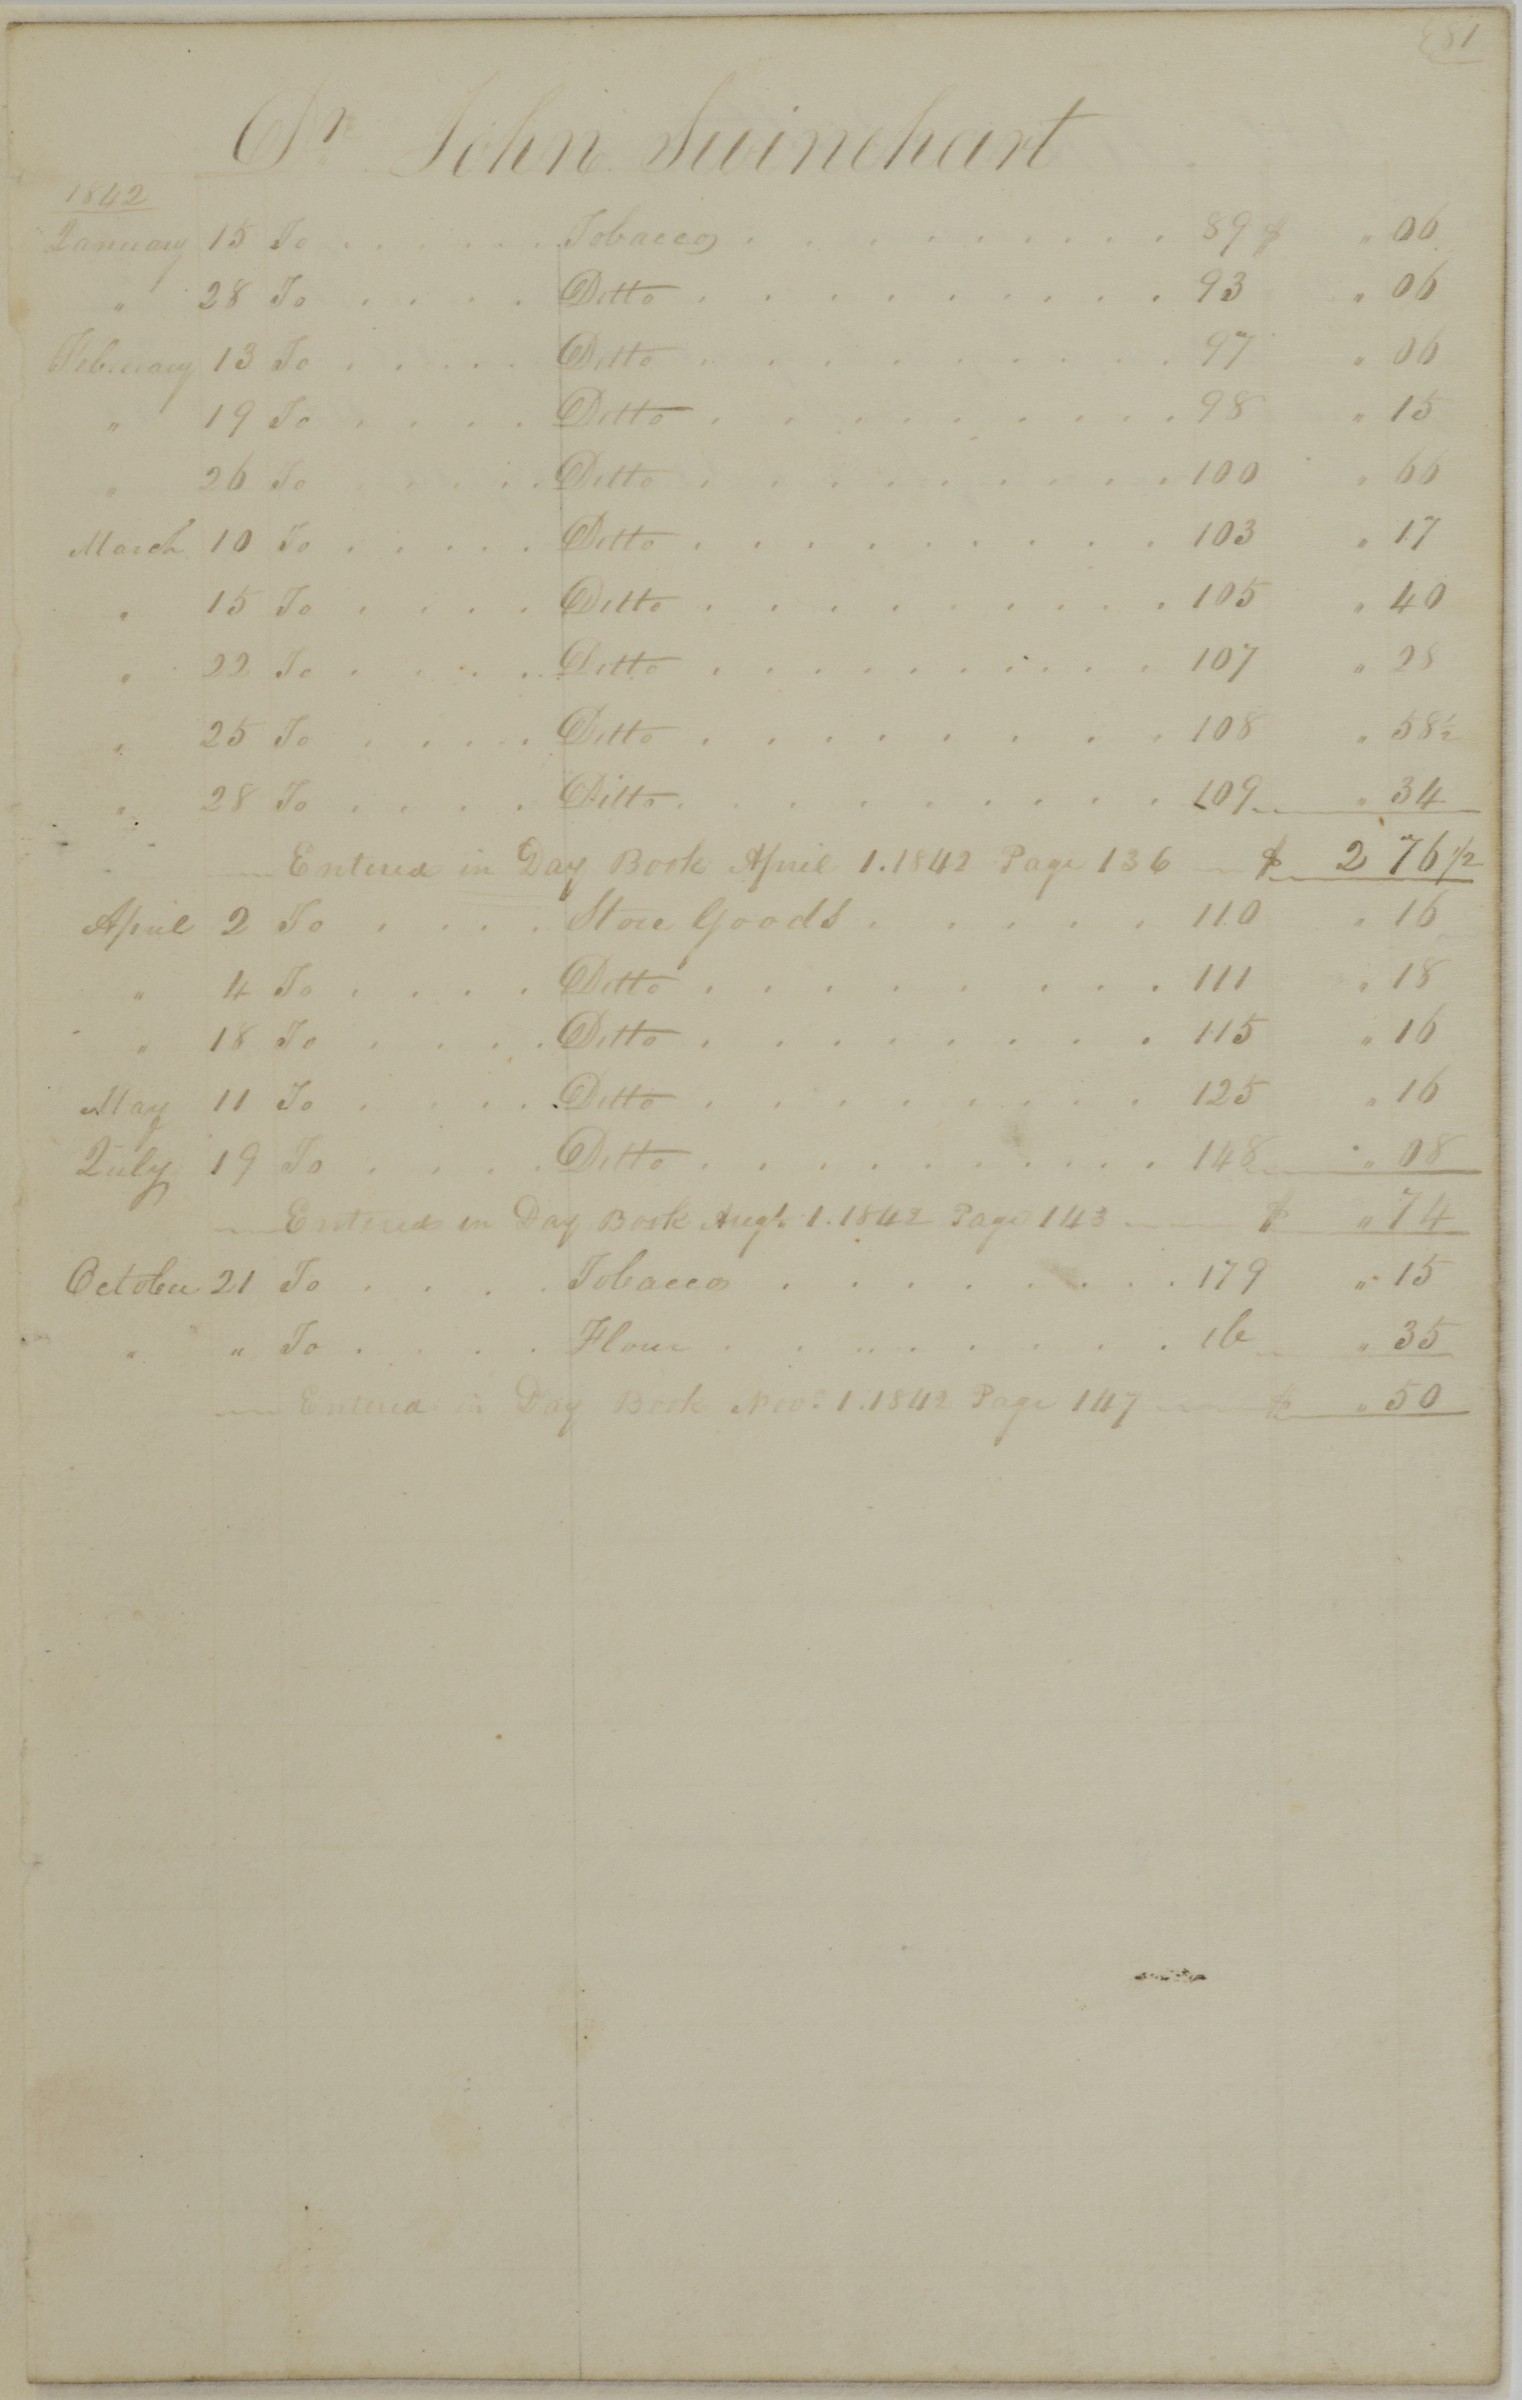 81
Dr John Swinehart
1842
January 15 To . . . . . . Tobacco . . . . . . . . . 89 $ " 06
" 28 To . . . . Ditto . . . . . . . . . . 93 " 06
February 13 To . . . . . Ditto . . . . . . . . . . 97 " 06
" 19 To . . . . Ditto . . . . . . . . . . 98 " 15
" 26 To . . . . . Ditto . . . . . . . . . . 100 " 66
March 10 To . . . . . Ditto . . . . . . . . . 103 " 17
" 15 To . . . . Ditto . . . . . . . . . . 105 " 40
" 22 To . . . . Ditto . . . . . . . . . . 107 " 28
" 25 To . . . . Ditto . . . . . . . . . 108 " 58½
" 28 To . . . . Ditto . . . . . . . . . 109 " 34
Entered in Day Book April 1. 1842 Page 136 $ 2 76 1/2
April 2 To . . . . Store Goods . . . . . 110 " 16
" 4 To . . . . Ditto . . . . . . . . . 111 " 18
" 18 To . . . . Ditto . . . . . . . . . 115 " 16
May 11 To . . . . Ditto . . . . . . . . . 125 " 16
July 19 To . . . . Ditto . . . . . . . . . . 148 " 08
Entered in Day Book Augt 1. 1842 Page 143 $ " 74
October 21 To . . . . Tobacco . . . . . . . . . 179 " 15
" " To . . . . Flour . . . . . . . . . ib " 35
Entered in Day Book Novr 1. 1842 Page 147 $ " 50